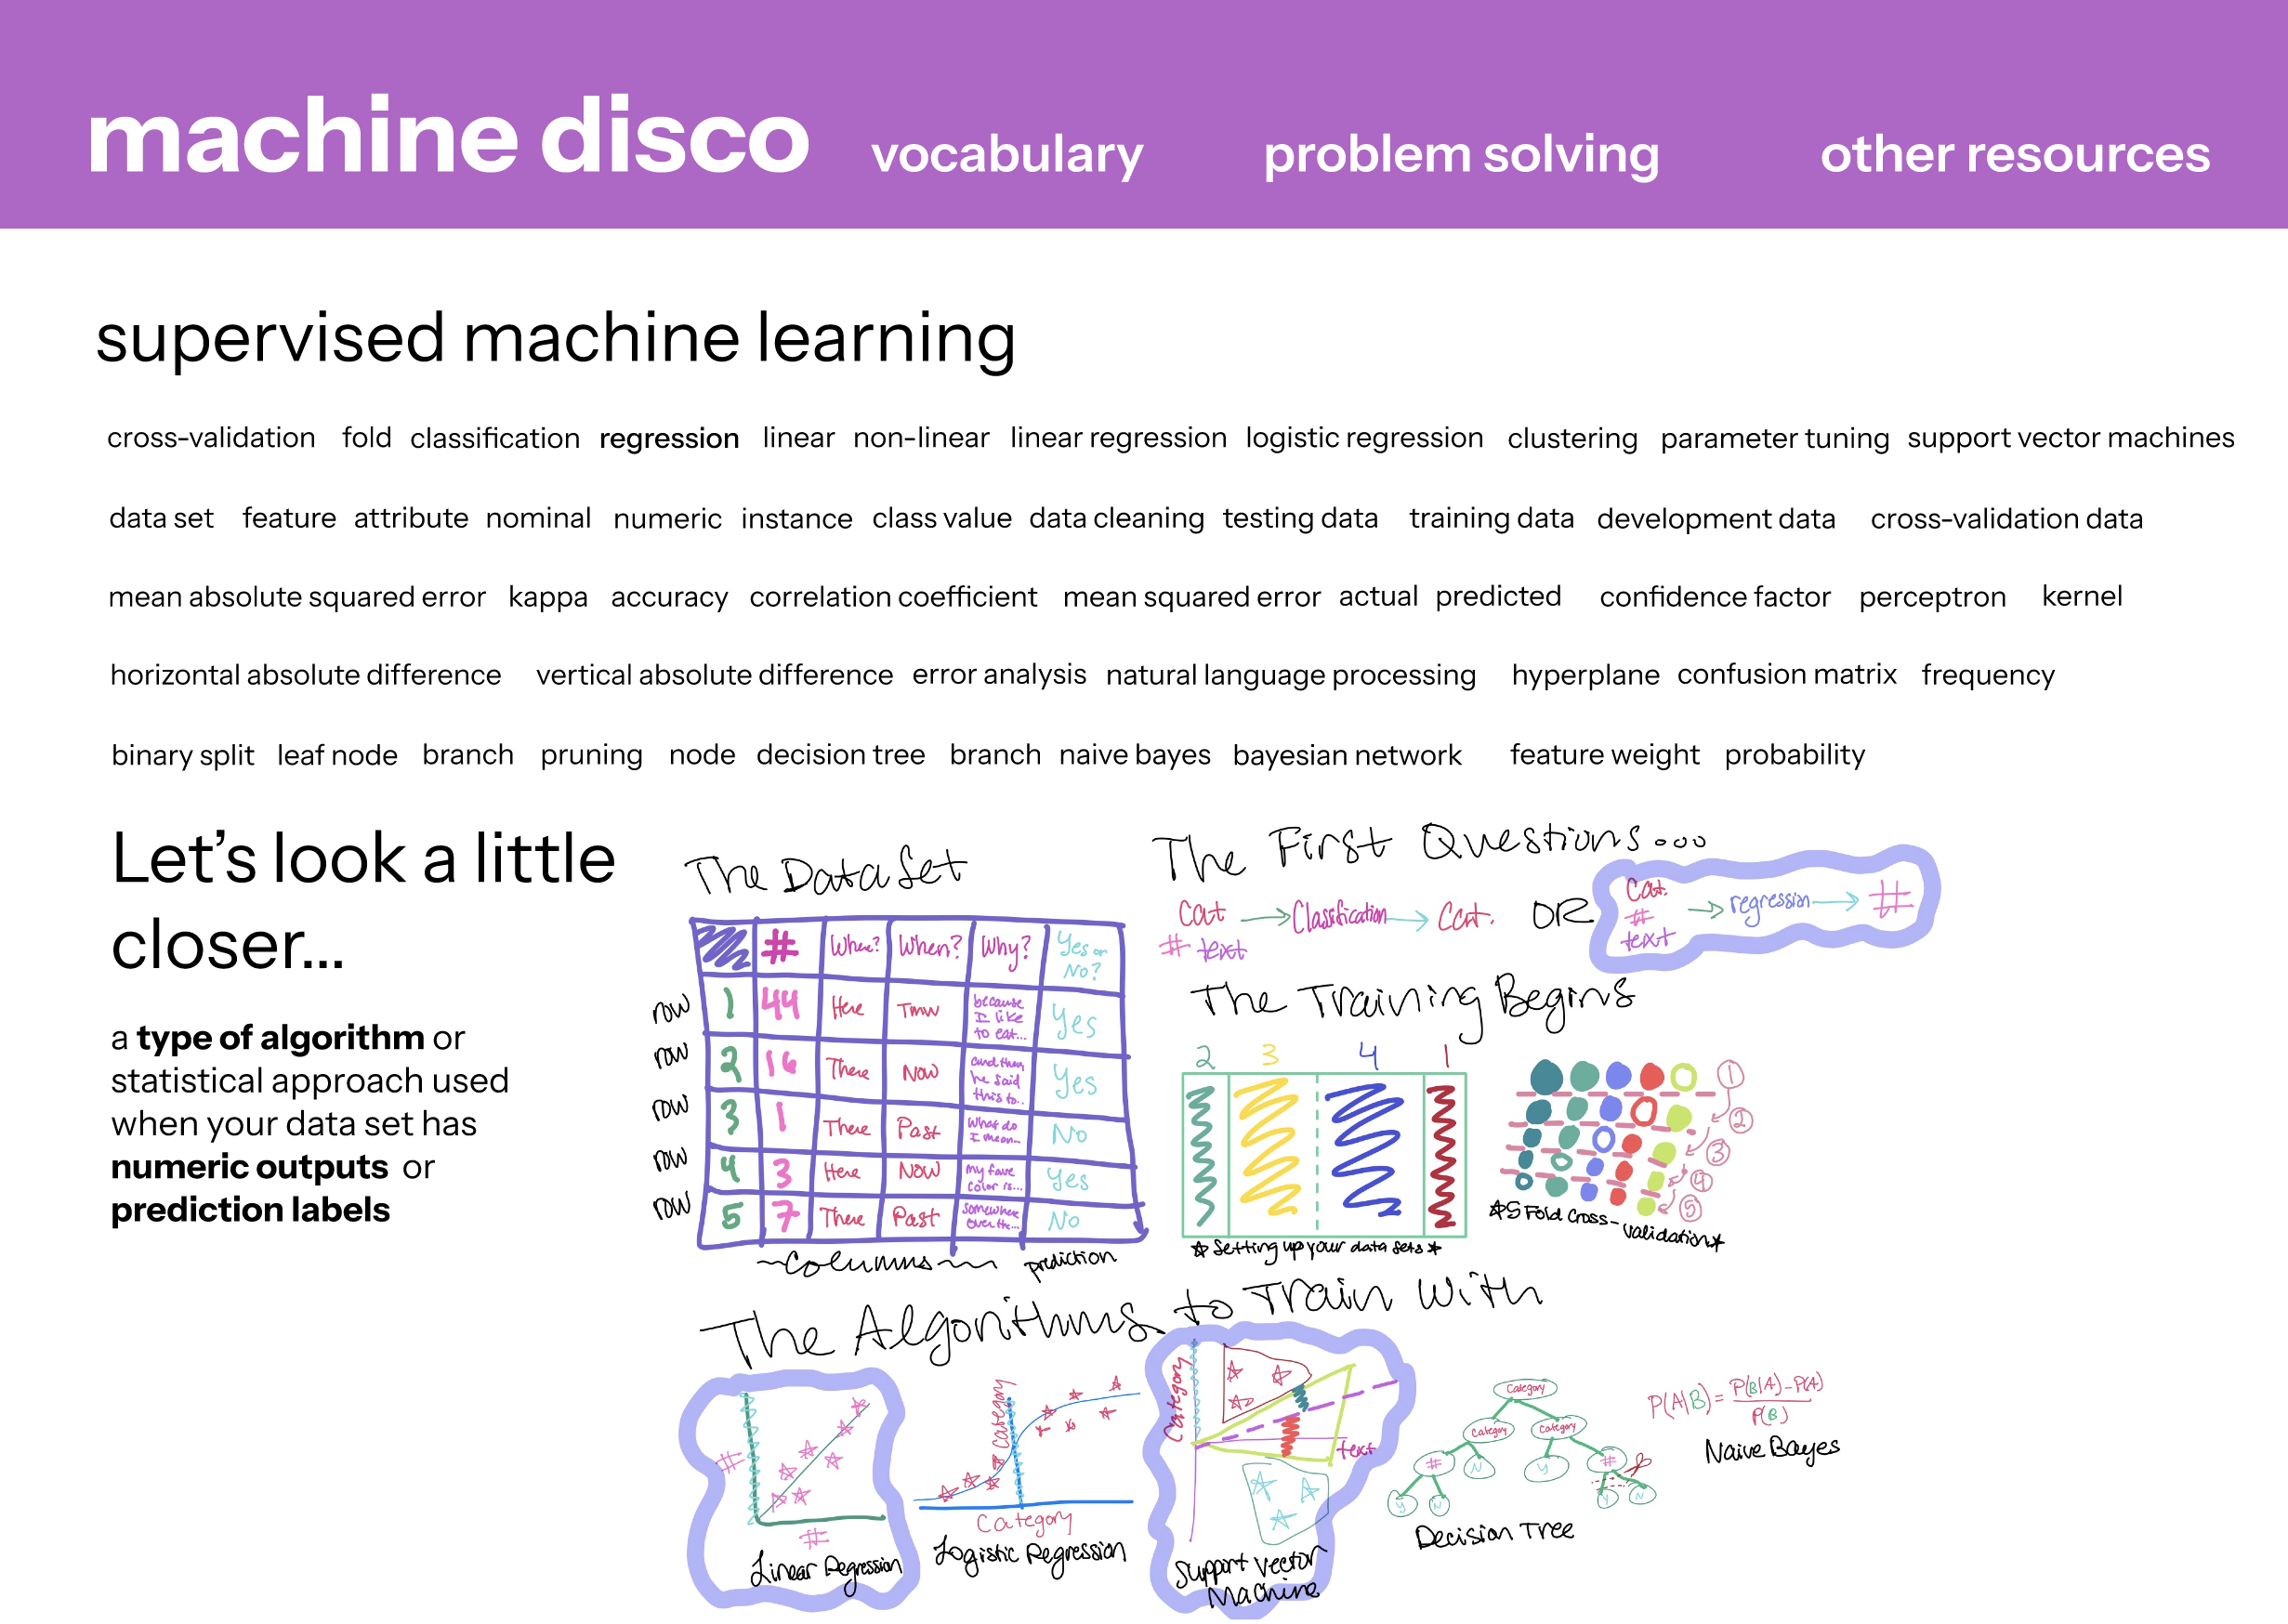 machine disco vocabulary problem solving other resources
supervised machine learning
cross-validation fold classification regression linear non-linear linear regression logistic regression clustering parameter tuning support vector machines
data set feature attribute nominal numeric instance class value data cleaning testing data training data development data cross-validation data
mean absolute squared error kappa accuracy correlation coefficient mean squared error actual predicted confidence factor perceptron kernel
horizontal absolute difference vertical absolute difference error analysis natural language processing hyperplane confusion matrix frequency
binary split leaf node branch pruning node decision tree branch naive bayes bayesian network feature weight probability
Let's look a little
closer...
a type of algorithm or
statistical approach used
when your data set has
numeric outputs or
prediction labels
The Data Set
# Where? When? Why? Yes or
No?
row 1 44 Here Tmw because
I like
to eat...
Yes
row 2 16 There Now and then
he said
this to..
Yes
row 3 1 There Past What do
I mean...
No
row 4 3 Here Now my fave
color is...
Yes
row 5 7 There Past somewhere
over the...
No
~Columns~ prediction
The First Questions...
Cat → Classification → Cat. OR
# text
Cat.
#
text
→ regression → #
The Training Begins
2 3 4 1
☆ Setting up your data sets ☆
1
2
3
4
5
☆5 Fold Cross-Validation☆
The Algorithms to Train With
#
#
Linear Regression
Category
Category
Logistic Regression
Category
text
Support Vector
Machine
Category
Category Category
# N Y #
Y N Y N
Decision Tree
P(A|B) = P(B|A)-P(A)
P(B)
Naive Bayes